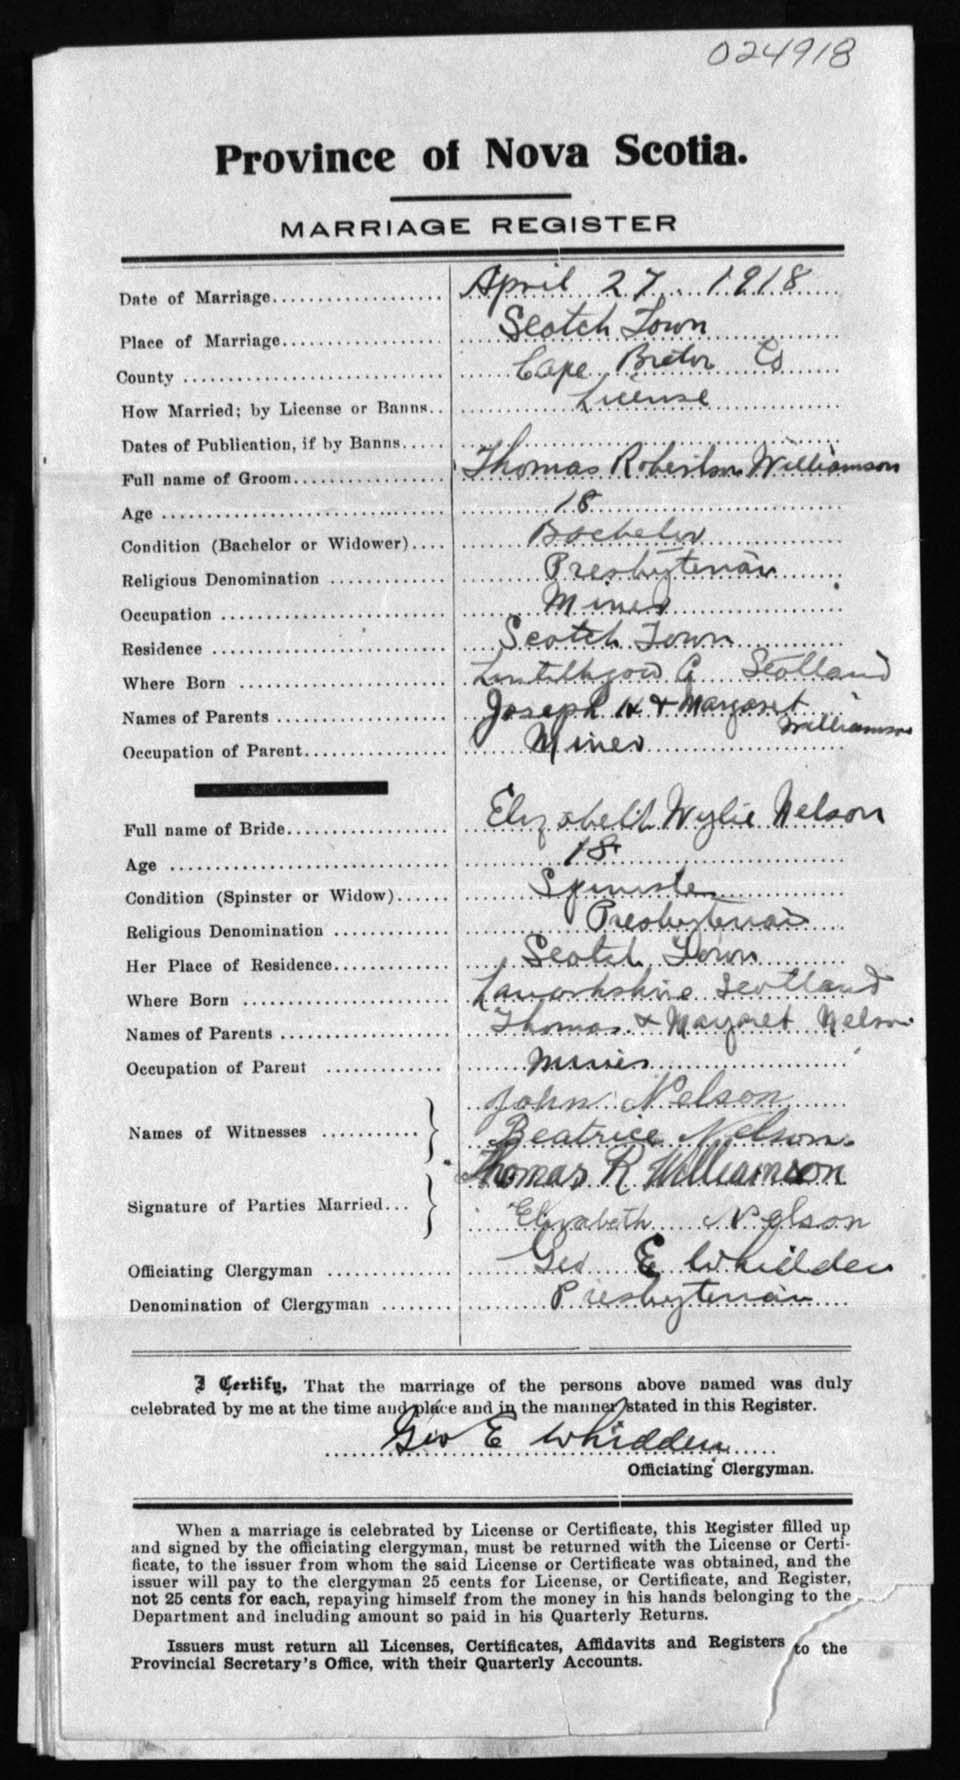 024918
Province of Nova Scotia.
MARRIAGE REGISTER
Date of Marriage.................... April 27. 1918
Place of Marriage.................. Scotch Town
County .............................. Cape Breton Co
How Married; by License or Banns.. License
Dates of Publication, if by Banns.....
Full name of Groom................. Thomas Robertson Williamson
Age ................................. 18
Condition (Bachelor or Widower).... Bachelor
Religious Denomination ............. Presbyterian
Occupation .......................... Miner
Residence ........................... Scotch Town
Where Born ........................ Scotland
Names of Parents ................... Joseph H & Margaret Williamson
Occupation of Parent................ Miner
Full name of Bride.................. Elizabeth Wylie Nelson
Age ................................. 18
Condition (Spinster or Widow)...... Spinster
Religious Denomination ............. Presbyterian
Her Place of Residence............. Scotch Town
Where Born ........................ Lanarkshire Scotland
Names of Parents ................... Thomas & Margaret Nelson
Occupation of Parent ............. Miner
John Nelson
Names of Witnesses ........... Beatrice Nelson.
Thomas R Williamson
Signature of Parties Married... Elizabeth Nelson
Officiating Clergyman .............. Geo E Whidden
Denomination of Clergyman ........ Presbyterian
I Certify, That the marriage of the persons above named was duly
celebrated by me at the time and place and in the manner stated in this Register.
Geo E Whidden
Officiating Clergyman.
When a marriage is celebrated by License or Certificate, this Register filled up
and signed by the officiating clergyman, must be returned with the License or Certi-
ficate, to the issuer from whom the said License or Certificate was obtained, and the
issuer will pay to the clergyman 25 cents for License, or Certificate, and Register,
not 25 cents for each, repaying himself from the money in his hands belonging to the
Department and including amount so paid in his Quarterly Returns.
Issuers must return all Licenses, Certificates, Affidavits and Registers to the
Provincial Secretary's Office, with their Quarterly Accounts.